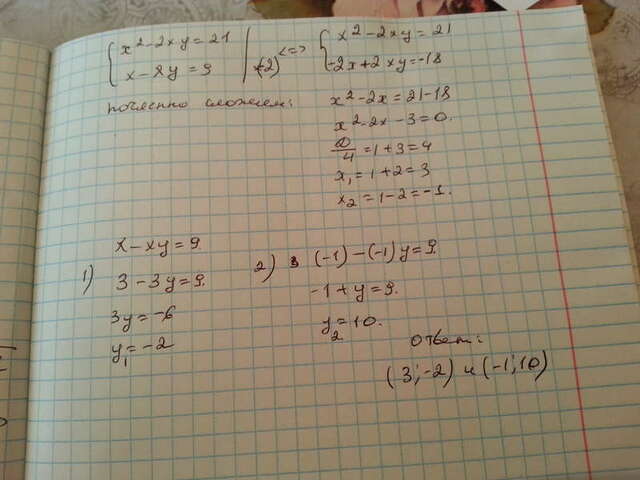 { x²-2xy=21 | <=> { x²-2xy=21
{ x-xy=9 | (-2) { -2x+2xy=-18
почленно сложим: x²-2x=21-18
x²-2x-3=0.
D/4=1+3=4
x₁=1+2=3
x₂=1-2=-1.
x-xy=9.
1) 3-3y=9.
3y=-6
y₁=-2
2) (-1)-(-1)y=9.
-1+y=9.
y₂=10.
Ответ:
(3;-2) и (-1;10)